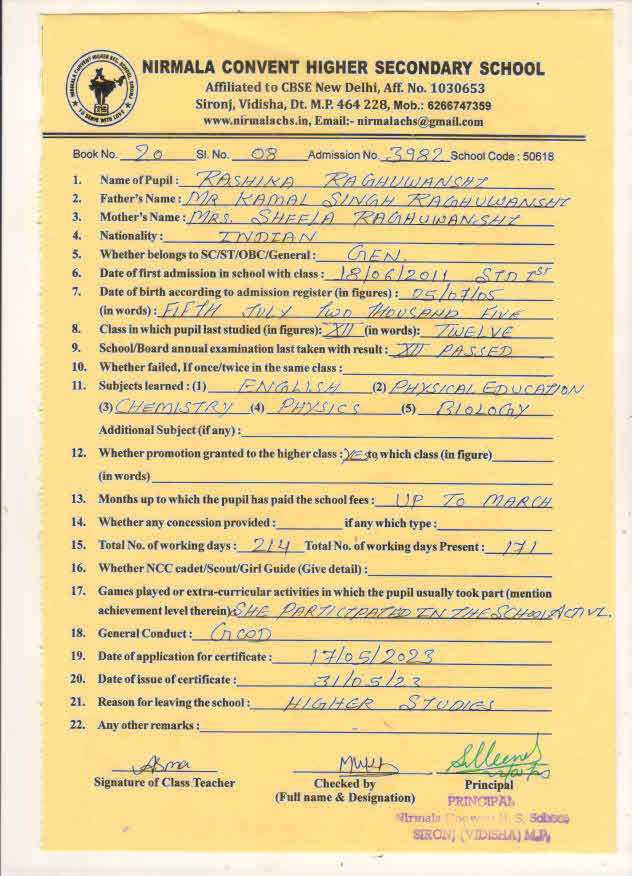 NIRMALA CONVENT HIGHER SECONDARY SCHOOL
Affiliated to CBSE New Delhi, Aff. No. 1030653
Sironj, Vidisha, Dt. M.P. 464 228, Mob.: 6266747359
www.nirmalachs.in, Email:- nirmalachs@gmail.com
Book No. 20 Sl. No. 08 Admission No. 3982 School Code : 50618
1. Name of Pupil : RASHIKA RAGHUWANSHI
2. Father's Name : MR KAMAL SINGH RAGHUWANSHI
3. Mother's Name : MRS. SHEELA RAGHUWANSHI
4. Nationality : INDIAN
5. Whether belongs to SC/ST/OBC/General : GEN.
6. Date of first admission in school with class : 18/06/2011 STD Ist
7. Date of birth according to admission register (in figures) : 05/07/05
(in words) : FIFTH JULY TWO THOUSAND FIVE
8. Class in which pupil last studied (in figures): XII (in words): TWELVE
9. School/Board annual examination last taken with result : XII PASSED
10. Whether failed, If once/twice in the same class :
11. Subjects learned : (1) ENGLISH (2) PHYSICAL EDUCATION
(3) CHEMISTRY (4) PHYSICS (5) BIOLOGY
Additional Subject (if any) :
12. Whether promotion granted to the higher class : YES to which class (in figure)
(in words)
13. Months up to which the pupil has paid the school fees : UP TO MARCH
14. Whether any concession provided : if any which type :
15. Total No. of working days : 214 Total No. of working days Present : 171
16. Whether NCC cadet/Scout/Girl Guide (Give detail) :
17. Games played or extra-curricular activities in which the pupil usually took part (mention
achievement level therein) : SHE PARTICIPATED IN THE SCHOOL ACTIVI.
18. General Conduct : GOOD
19. Date of application for certificate : 17/05/2023
20. Date of issue of certificate : 31/05/23
21. Reason for leaving the school : HIGHER STUDIES
22. Any other remarks :
Signature of Class Teacher Checked by Principal
(Full name & Designation)
PRINCIPAL
Nirmala Convent H. S. School
SIRONJ (VIDISHA) M.P.